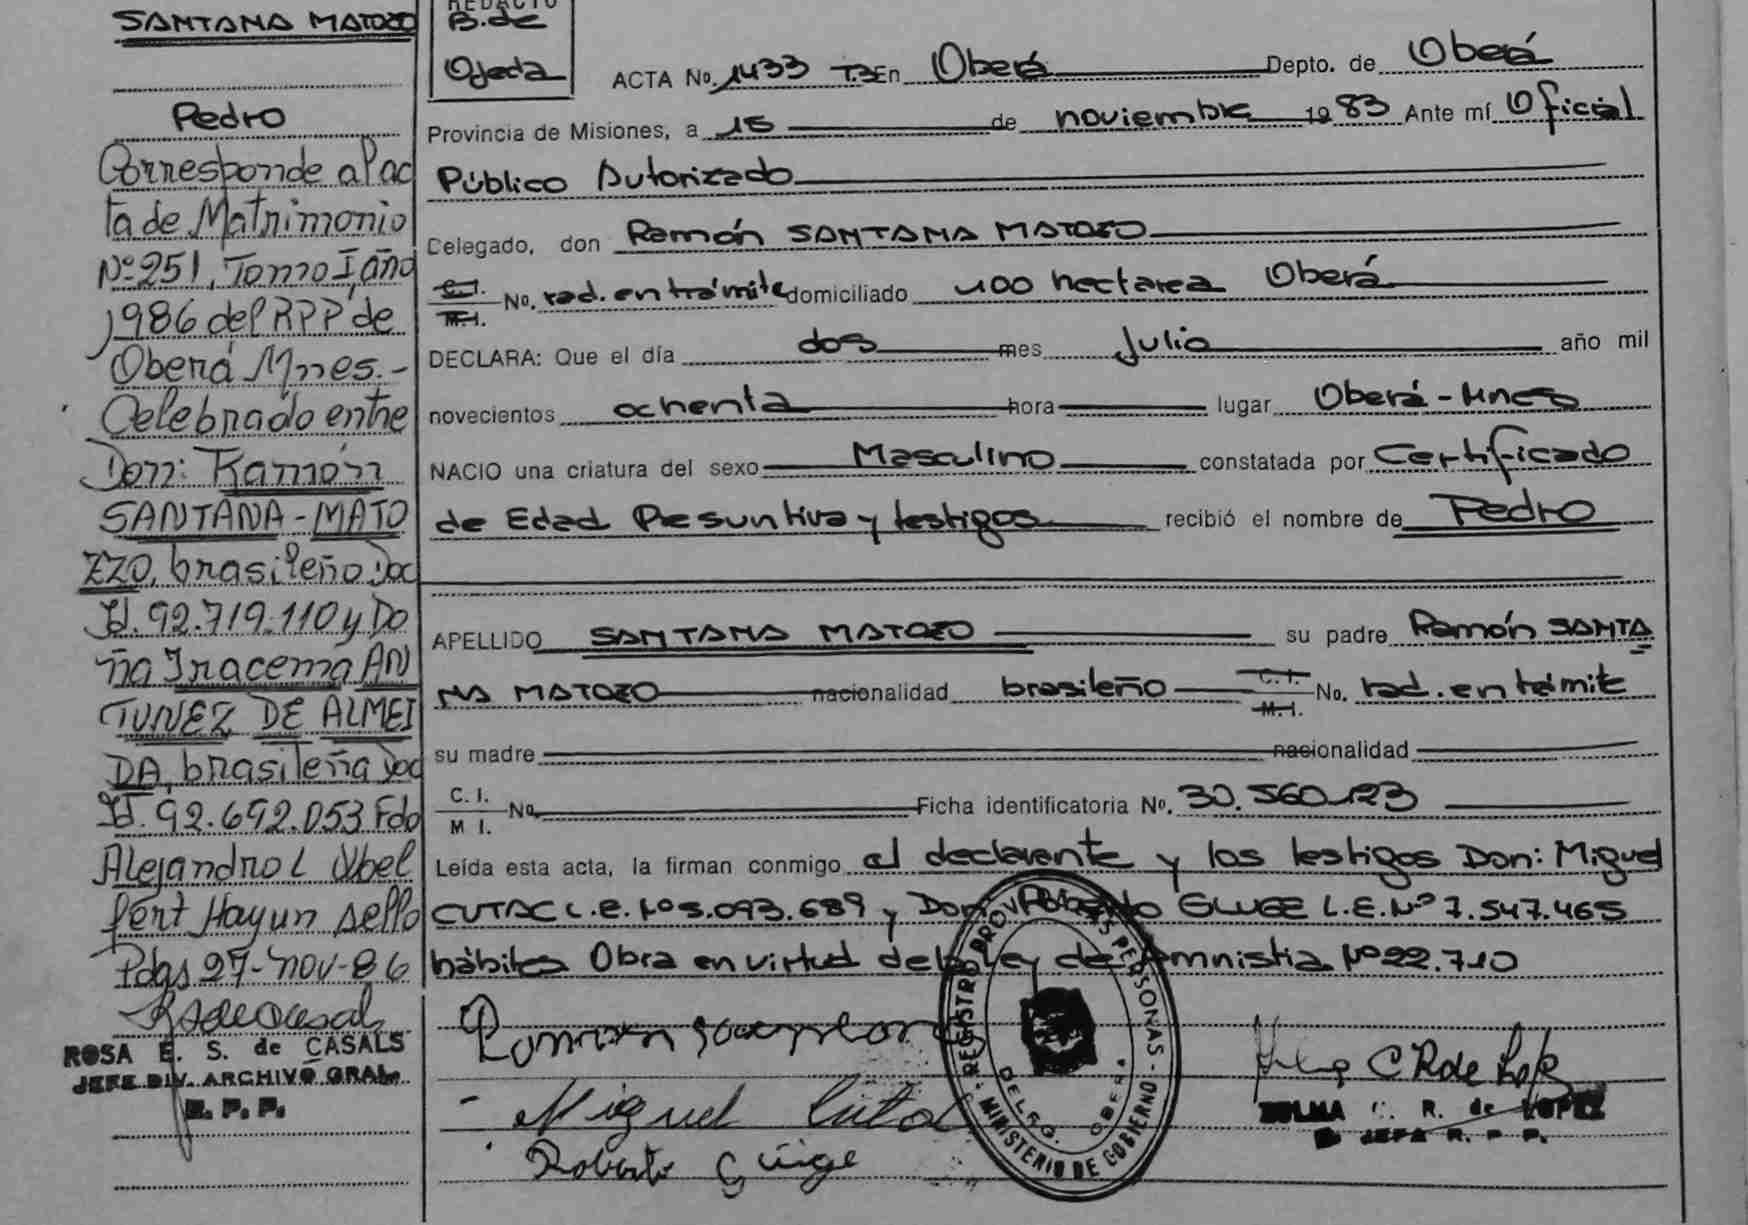 SANTANA MATOZO
Pedro
Corresponde al ac
ta de Matrimonio
Nº 251, Tomo I, año
1986 del RPP de
Oberá Mnes.-
Celebrado entre
Don: Ramón
SANTANA-MATO
ZZO, brasileño Doc
Id. 92.719.110 y Do
ña Iracema AN
TUNEZ DE ALMEI
DA, brasileña Doc
Id. 92.692.053 Fdo
Alejandro L
Hayun sello
Pdas 27-nov-86
ROSA E. S. de CASALS
JEFE DIV. ARCHIVO GRAL.
R. P. P.
REDACTO
B. de
Ojeda
ACTA No. 1433 T.3 En Oberá Depto. de Oberá
Provincia de Misiones, a 15 de noviembre 1983 Ante mí Oficial
Público Autorizado
Celegado, don Ramón SANTANA MATOZO
C.I. M.I. No. rad. en trámite domiciliado 400 hectarea Oberá
DECLARA: Que el día dos mes Julio año mil
novecientos ochenta hora lugar Oberá-Mnes
NACIO una criatura del sexo Masculino constatada por Certificado
de Edad Presuntiva y testigos recibió el nombre de Pedro
APELLIDO SANTANA MATOZO su padre Ramón SANTA
NA MATOZO nacionalidad brasileño C.I. M.I. No. rad. en trámite
su madre nacionalidad
C. I. M I. No. Ficha identificatoria No. 30.560.123
Leída esta acta, la firman conmigo el declarante y los testigos Don: Miguel
CUTAC L.E. Nº 5.093.689 y Don GUGE L.E. Nº 7.547.465
hábiles Obra en virtud de la Ley de Amnistia Nº 22.710
REGISTRO PROV. DE LAS PERSONAS - MINISTERIO DE GOBIERNO -
DELEG. OBERA
Miguel
Roberto
ZULMA C. R. de LOPEZ
JEFA R. P. P.